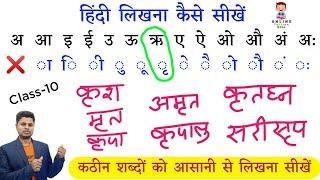 हिंदी लिखना कैसे सीखें
अ आ इ ई उ ऊ ऋ ए ऐ ओ औ अं अः
❌ ा ि ी ु ू ृ े ै ो ौ ं ः
Class-10
कृश अमृत कृतघ्न
मृत कृपालु सरीसृप
कृपा
कठीन शब्दों को आसानी से लिखना सीखें